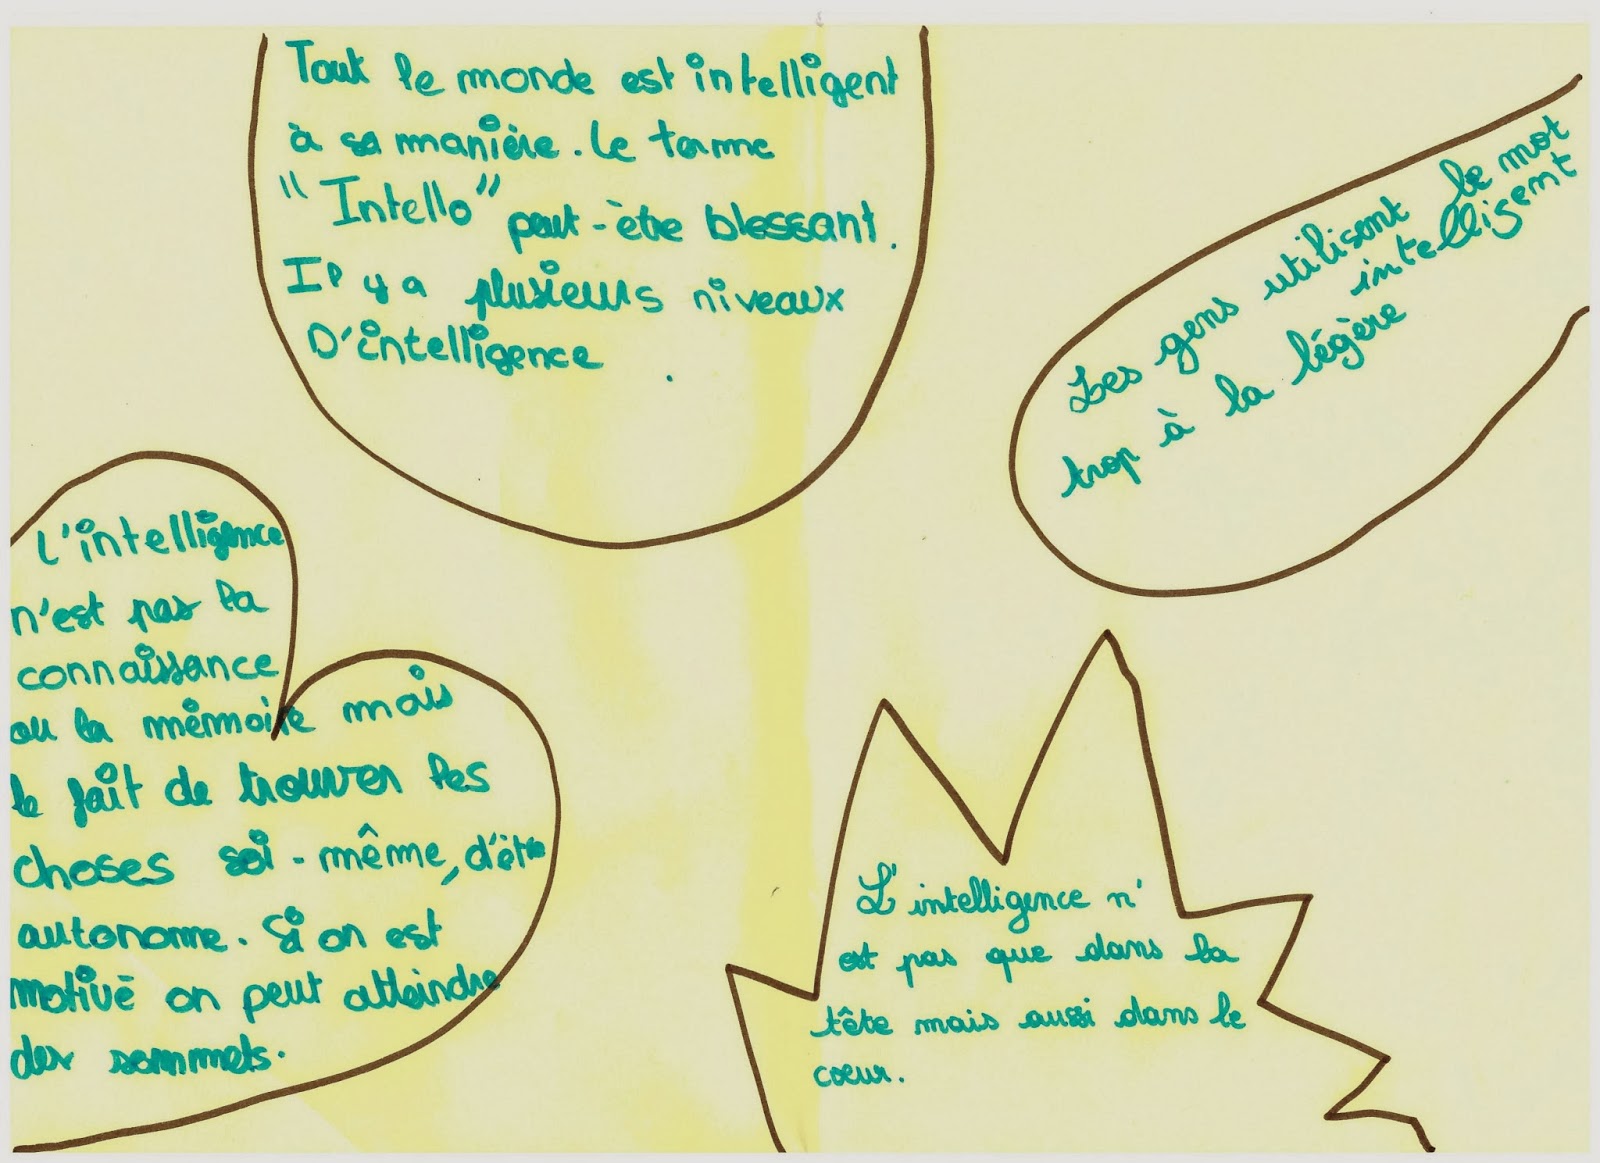 Tout le monde est intelligent
à sa manière. Le terme
"Intello" peut-être blessant.
Il y a plusieurs niveaux
D'intelligence.
Les gens utilisent le mot
intelligent
trop à la légère
L'intelligence
n'est pas la
connaissance
ou la mémoire mais
le fait de trouver les
choses soi-même, d'être
autonome. Si on est
motivé on peut atteindre
des sommets.
L'intelligence n'
est pas que dans la
tête mais aussi dans le
coeur.